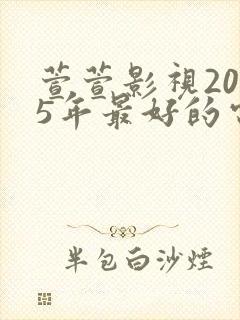 萱萱影視20
5年最好的
半包白沙煙